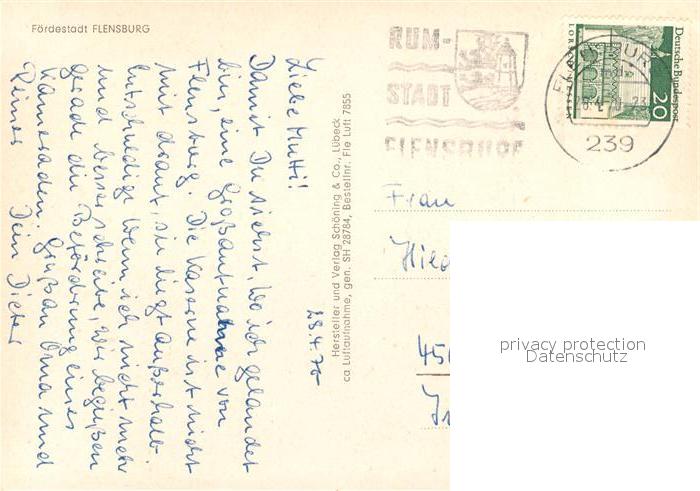 Fördestadt FLENSBURG
28.4.70
Liebe Mutti!
Damit Du siehst, wo ich gelandet
bin, eine Großaufnahme von
Flensburg. Die Kaserne ist nicht
mit drauf, sie liegt außerhalb.
Entschuldige wenn ich nicht mehr
und besser schreibe, wir begießen
gerade die Beförderung eines
Kameraden. Gruß an Oma und
Dein Dieter
Hersteller und Verlag Schöning & Co., Lübeck
ca Luftaufnahme, gen. SH 28784, Bestellnr. Fle Luft 7855
RUM-
STADT
FLENSBURG
Deutsche Bundespost
20
LORSCH
HESSEN
239
Frau
Hild
45
privacy protection
Datenschutz